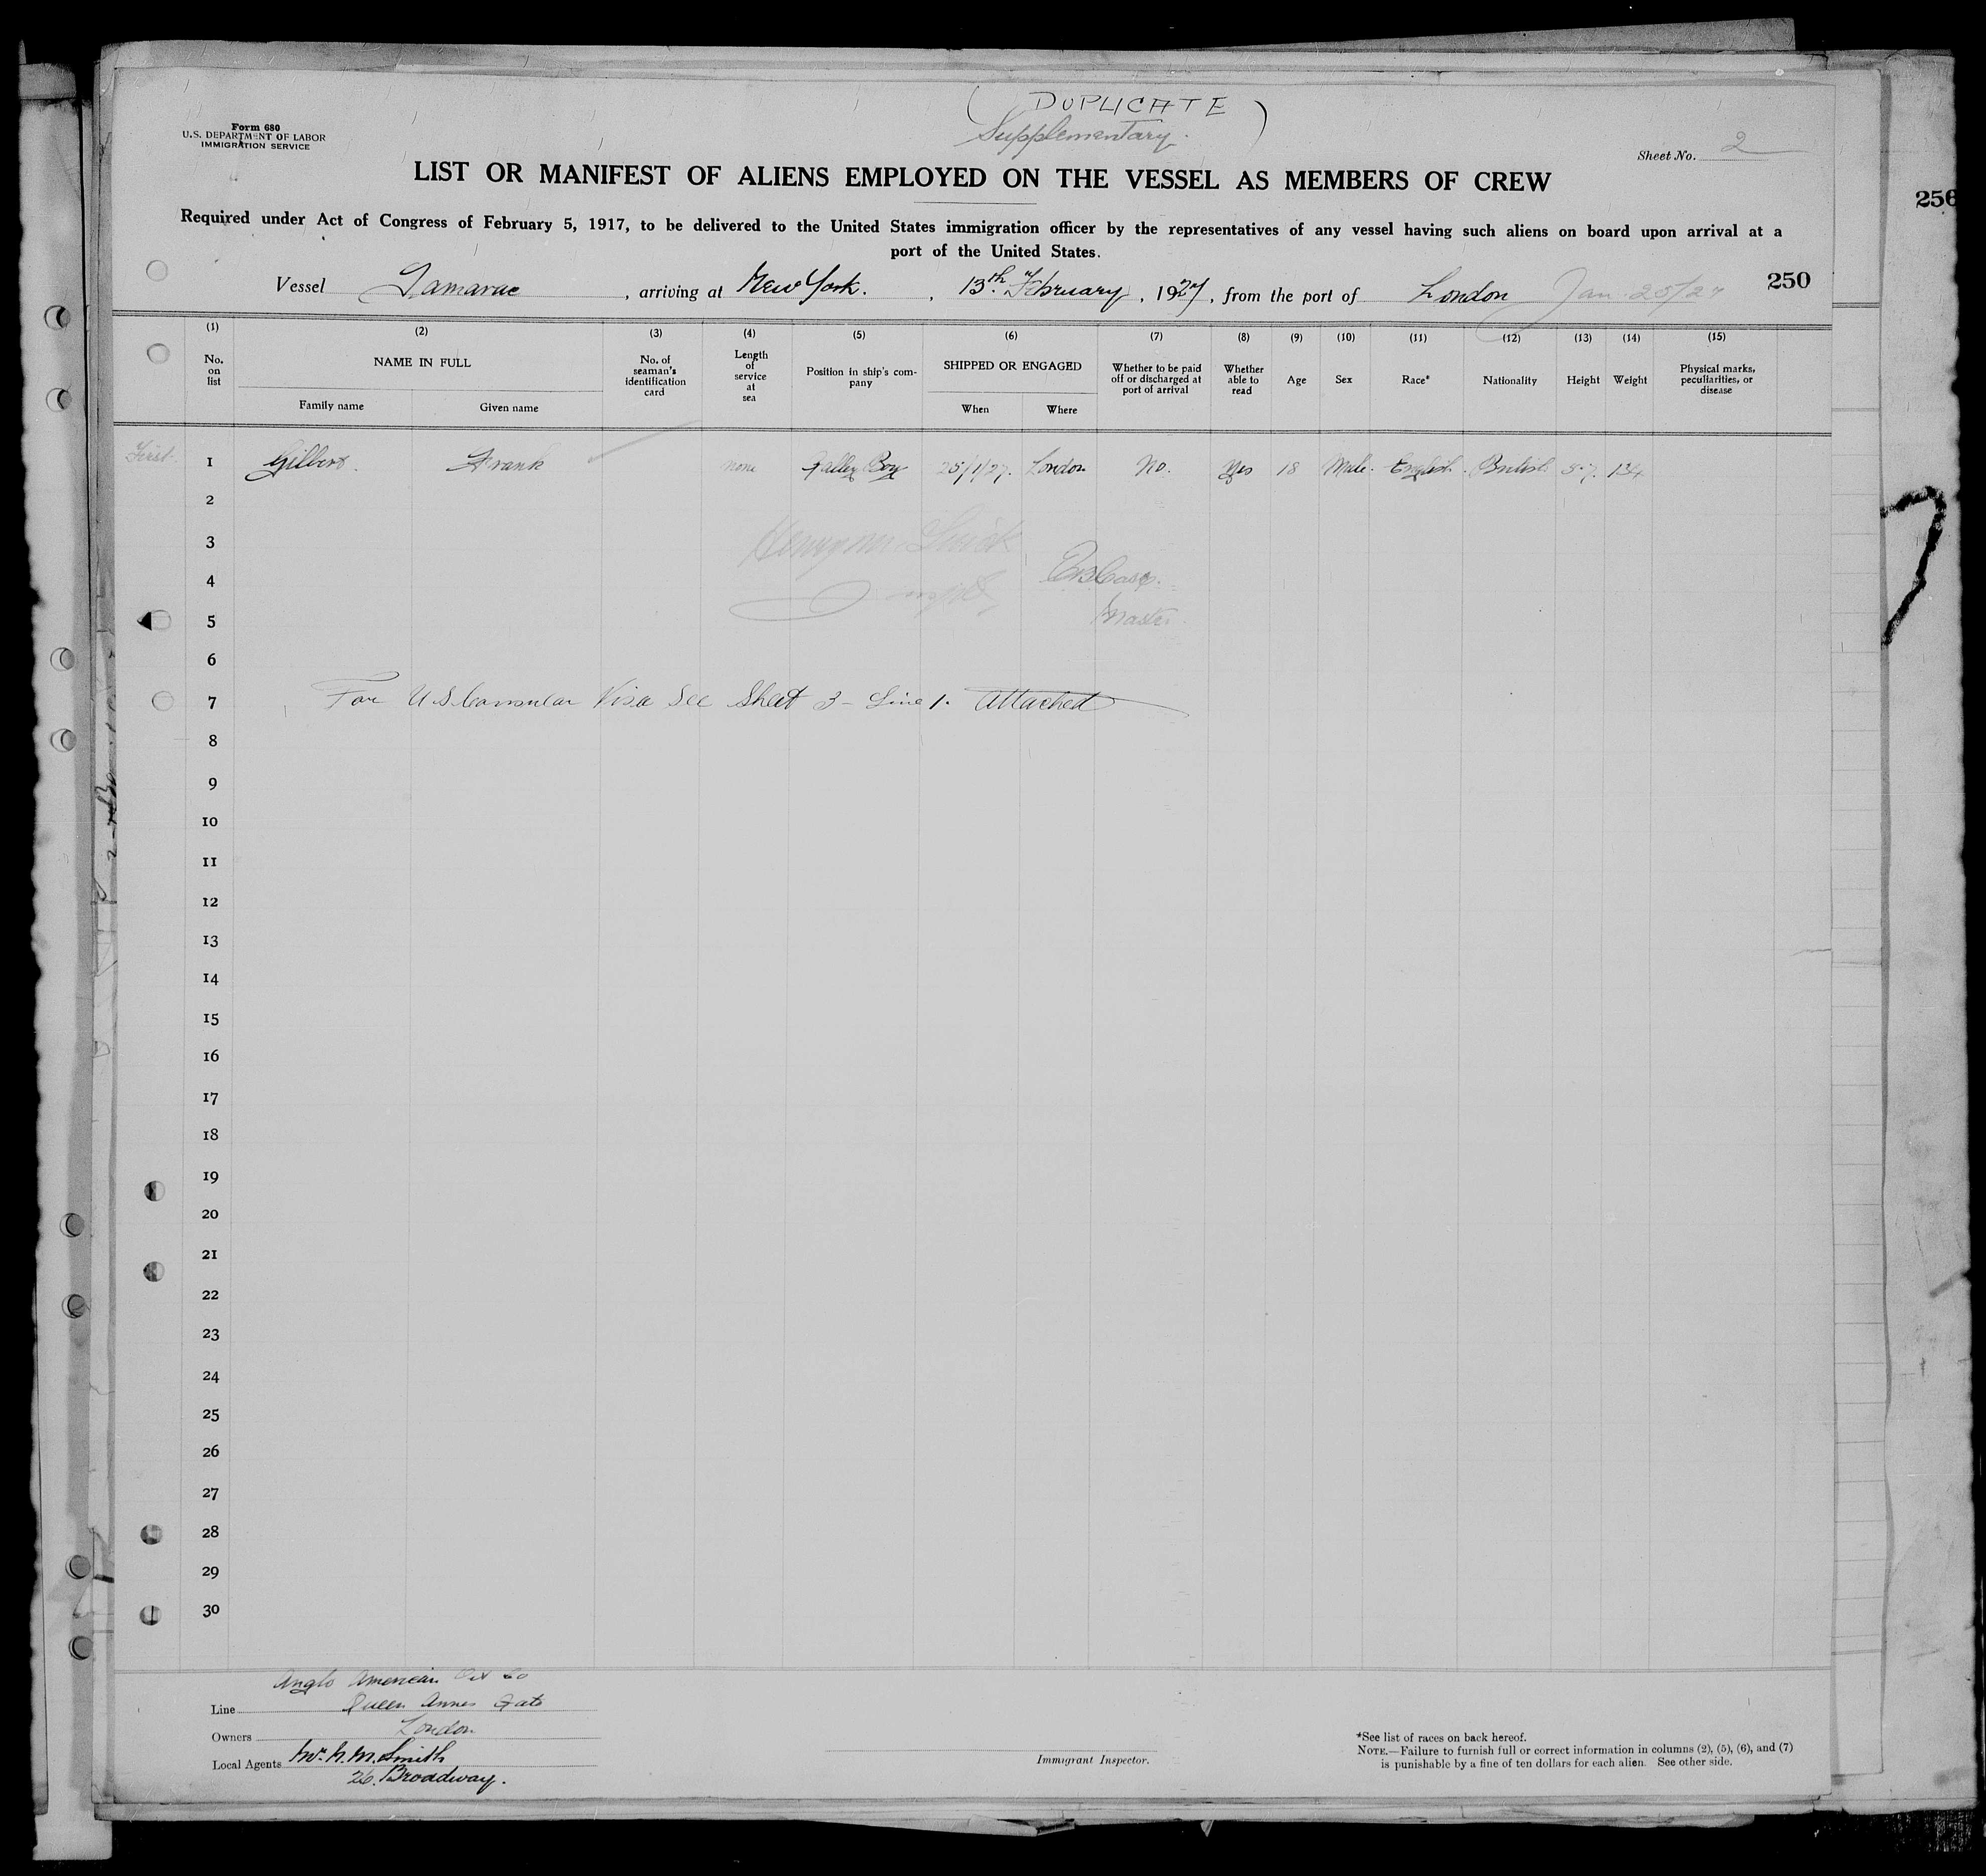 ( DUPLICATE )
Supplementary.
Form 680
U.S. DEPARTMENT OF LABOR
IMMIGRATION SERVICE
Sheet No. 2
256
LIST OR MANIFEST OF ALIENS EMPLOYED ON THE VESSEL AS MEMBERS OF CREW
Required under Act of Congress of February 5, 1917, to be delivered to the United States immigration officer by the representatives of any vessel having such aliens on board upon arrival at a
port of the United States.
250
Vessel Tamarac , arriving at New York. , 13th February , 1927, from the port of London Jan. 25/27
(1) (2) (3) (4) (5) (6) (7) (8) (9) (10) (11) (12) (13) (14) (15)
No. on list NAME IN FULL No. of seaman's identification card Length of service at sea Position in ship's company SHIPPED OR ENGAGED Whether to be paid off or discharged at port of arrival Whether able to read Age Sex Race* Nationality Height Weight Physical marks, peculiarities, or disease
Family name Given name When Where
First. 1 Gilbert. Frank none Galley Boy 25/1/27. London No. Yes 18 Male. English. British 5.7. 134
2
3
4
Master.
5
6
7 For U S Consular Visa See Sheet 3 - Line 1. Attached
8
9
10
11
12
13
14
15
16
17
18
19
20
21
22
23
24
25
26
27
28
29
30
Anglo American Oil Co
Line Queen Annes Gate
Owners London
Local Agents Mr. N. M. Smith
26. Broadway.
Immigrant Inspector.
*See list of races on back hereof.
NOTE.—Failure to furnish full or correct information in columns (2), (5), (6), and (7)
is punishable by a fine of ten dollars for each alien. See other side.